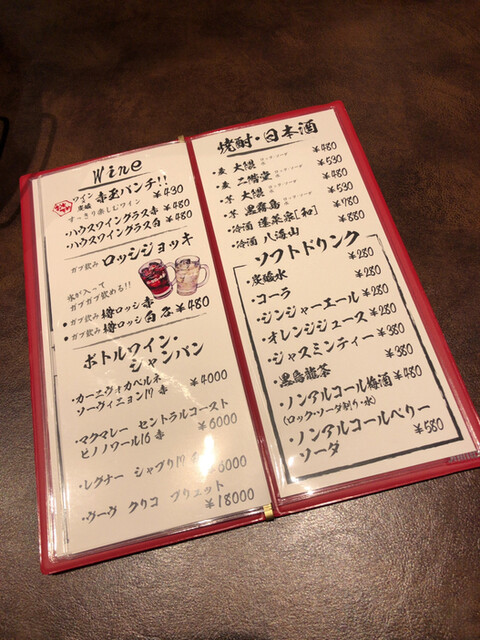 Wine
ワイン
炭酸 赤玉パンチ!! ¥430
すっきり楽しむワイン
・ハウスワイングラス赤 ¥480
・ハウスワイングラス白 ¥480
ガブ飲み ロッシジョッキ
氷が入って
ガブガブ飲める!!
・ガブ飲み 樽ロッシ赤
・ガブ飲み 樽ロッシ白 各¥480
ボトルワイン・
シャンパン
・カーニヴォカベルネ
ソーヴィニヨン17 赤 ¥4000
・マクマレー セントラルコースト
ピノノワール16 赤 ¥6000
・レグナー シャブリ17 ¥6000
・ヴーヴ クリコ ブリュット ¥18000
焼酎・日本酒
・麦 大隅 ロック・ソーダ ¥480
・麦 二階堂 ロック・ソーダ ¥530
・芋 大隅 ロック・ソーダ ¥480
・芋 黒霧島 ロック・ソーダ ¥530
・冷酒 蓬莱泉[和] ¥980
・冷酒 八海山 ¥880
ソフトドリンク
・炭酸水 ¥280
・コーラ ¥280
・ジンジャーエール ¥280
・オレンジジュース ¥280
・ジャスミンティー ¥380
・黒烏龍茶 ¥380
・ノンアルコール梅酒 ¥480
(ロック・ソーダ割り・水)
・ノンアルコールベリー
ソーダ ¥580